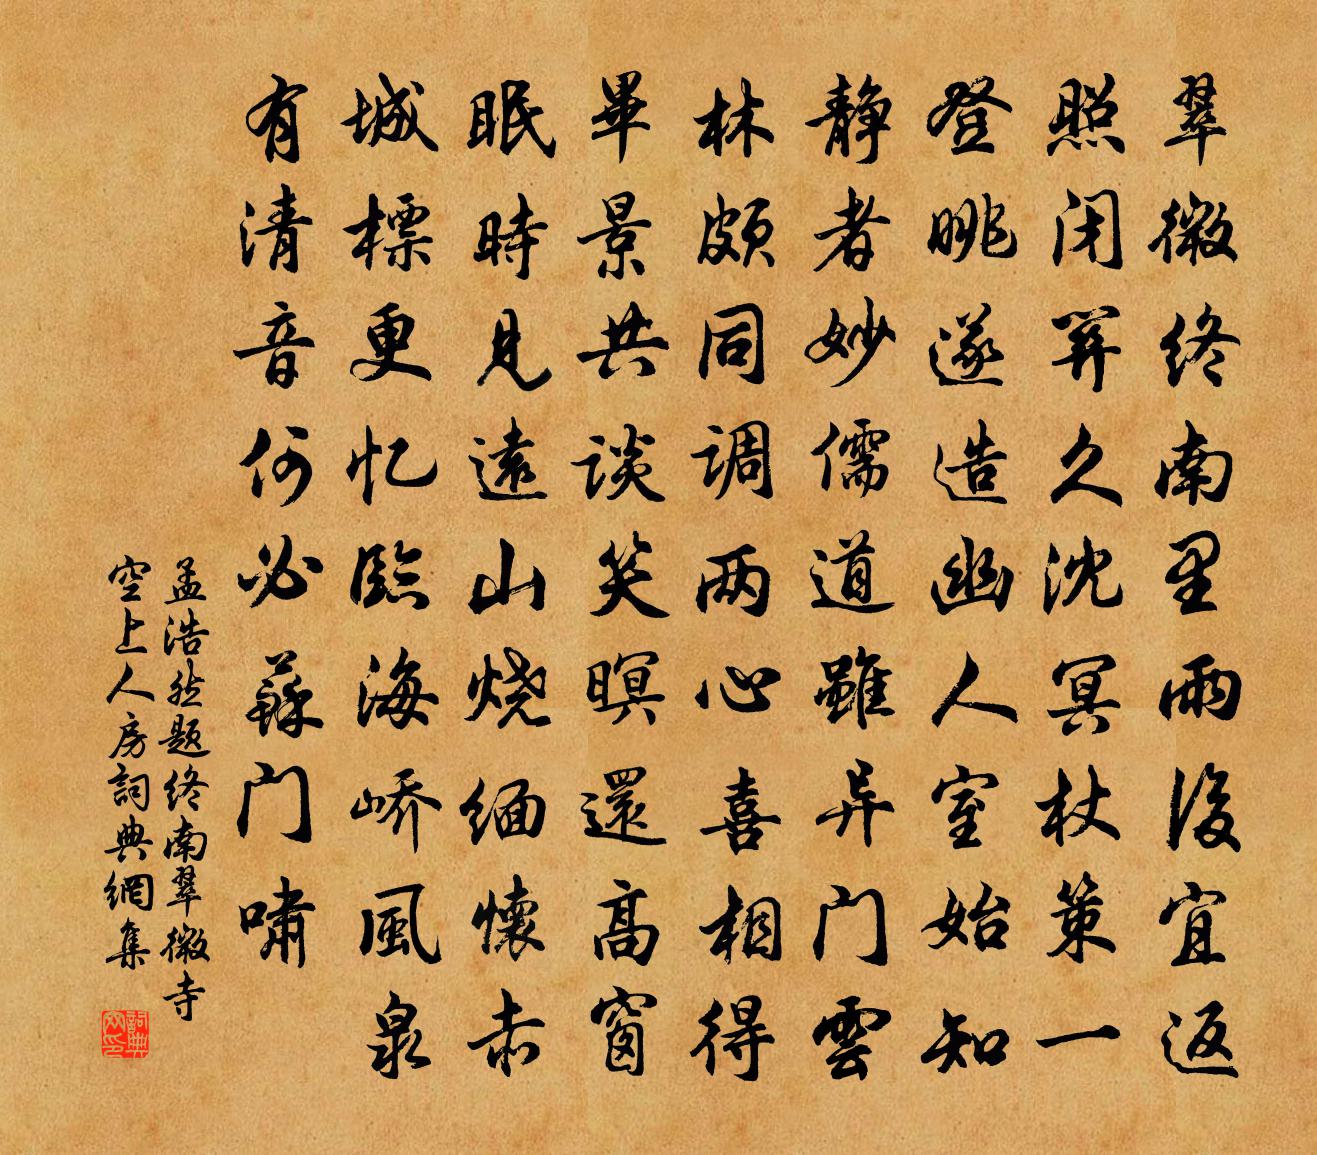 翠微终南里雨後宜返
照闭关久沈冥杖策一
登眺遂造幽人室始知
静者妙儒道雖异门雲
林頗同调两心喜相得
畢景共談笑暝還高窗
眠時見遠山烧缅懷赤
城標更忆臨海峤風泉
有清音何必蘇门嘯
孟浩然题终南翠微寺
空上人房詞典網集
詞典网印